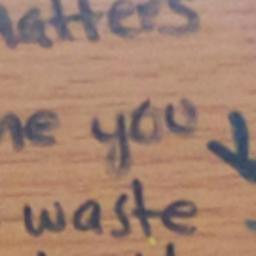 matters
you
waste